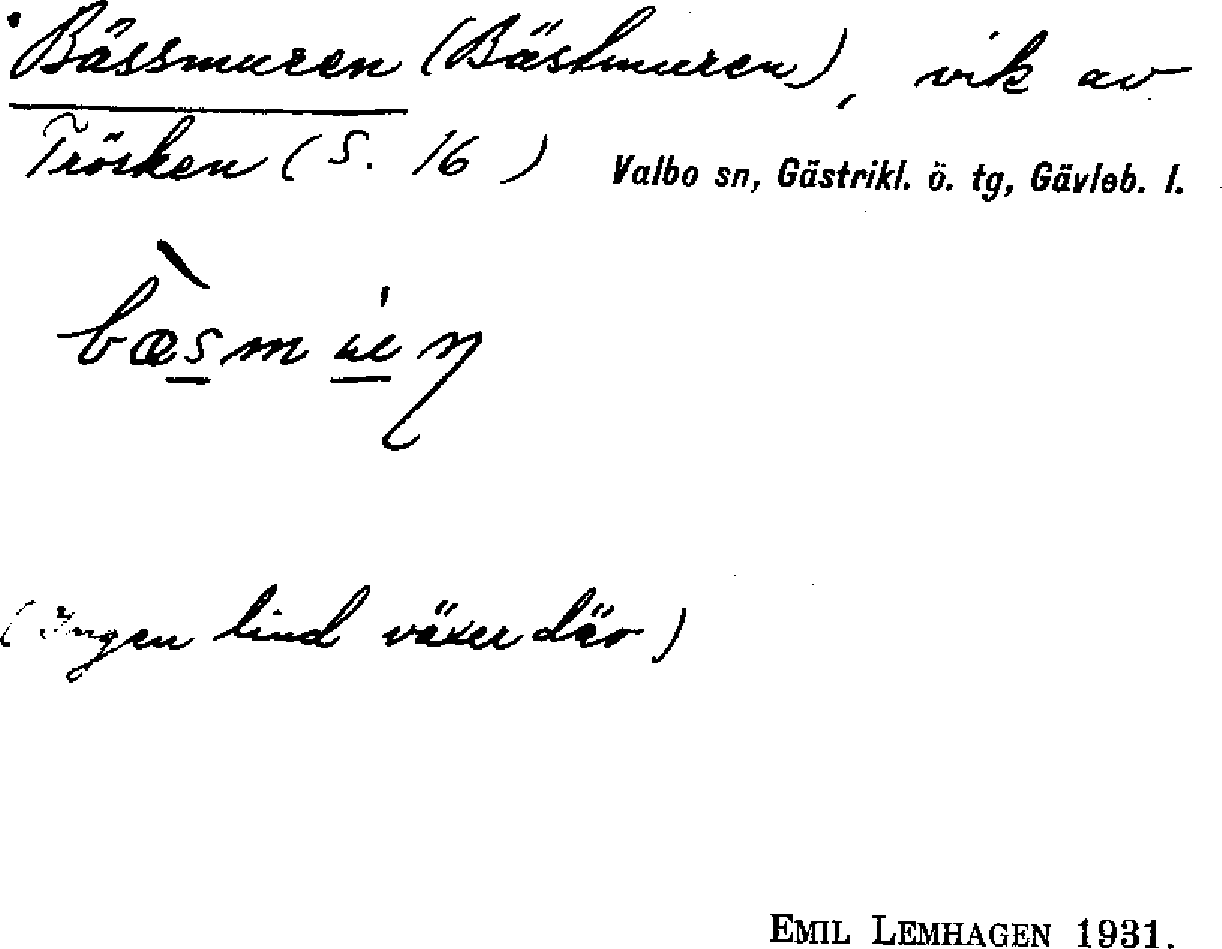 Bässmuren (Bästmuren), vik av
Trösken (S. 16) Valbo sn, Gästrikl. ö. tg, Gävleb. l.
(Ingen lind växer där)
EMIL LEMHAGEN 1931.